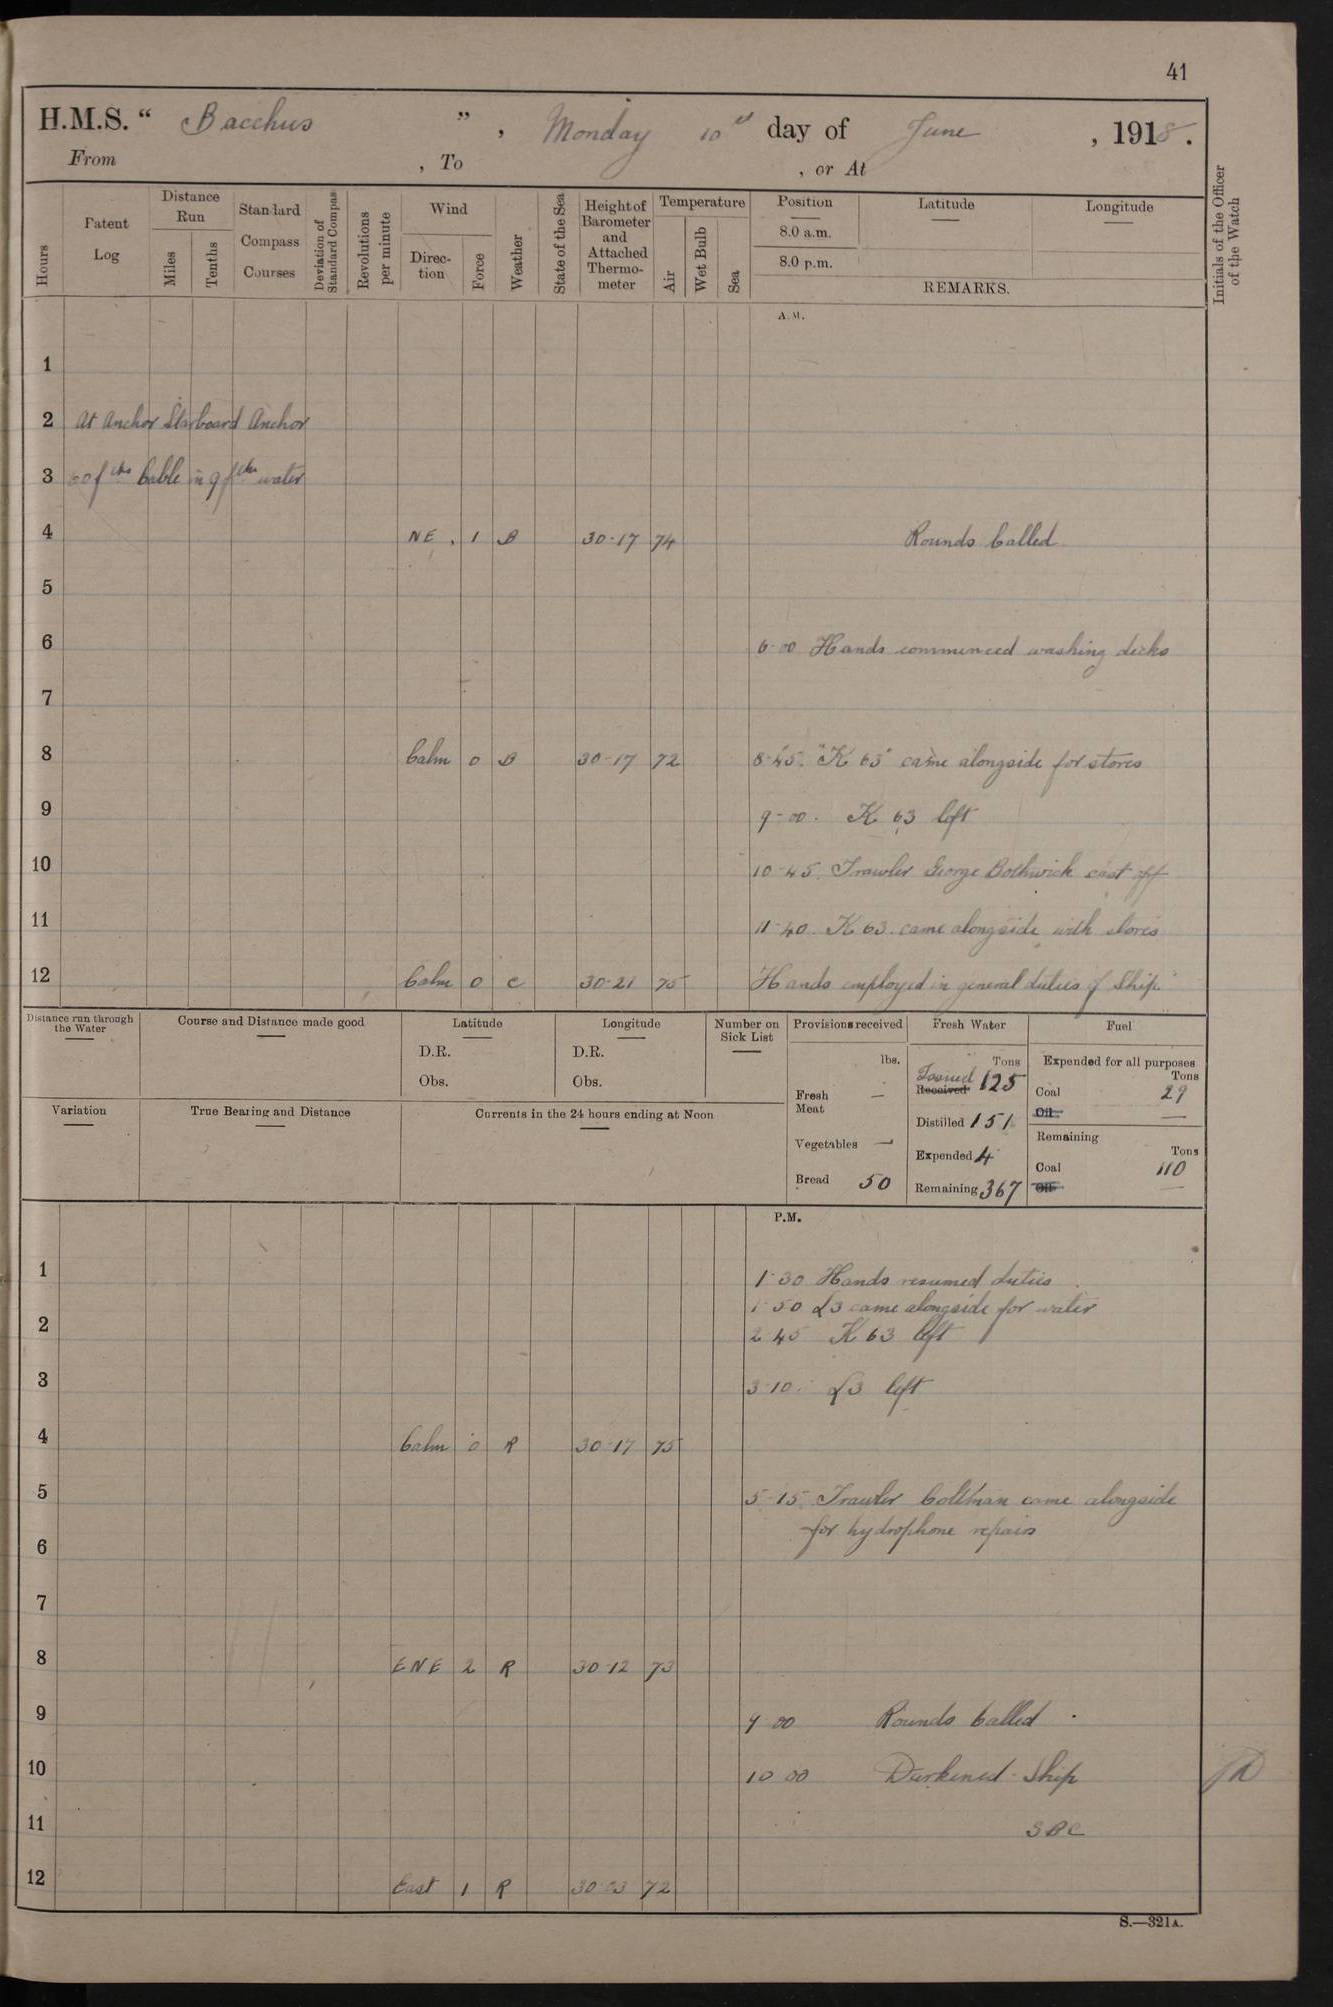 41
H.M.S. “ Bacchus ” , Monday 10th day of June , 1918.
From , To , or At
Hours
Patent Log
Distance Run
Miles
Tenths
Standard Compass Courses
Deviation of Standard Compass
Revolutions per minute
Wind
Direction
Force
Weather
State of the Sea
Height of Barometer and Attached Thermometer
Temperature
Air
Wet Bulb
Sea
Position
8.0 a.m.
8.0 p.m.
Latitude
Longitude
REMARKS.
Initials of the Officer of the Watch
A.M.
1
2 At Anchor Starboard Anchor
3 60 fths Cable in 9 fths water
4 NE. 1 B 30·17 74 Rounds Called
5
6 6·00 Hands commenced washing decks
7
8 Calm 0 B 30·17 72 8·45. "K 63" came alongside for stores
9 9-00. K 63 left
10 10·45. Trawler George Bothwick cast off
11 11·40. K 63. came alongside with stores
12 Calm 0 C 30·21 75 Hands employed in general duties of Ship.
Distance run through the Water
Course and Distance made good
Latitude
D.R.
Obs.
Longitude
D.R.
Obs.
Number on Sick List
Provisions received
lbs.
Fresh Meat —
Vegetables —
Bread 50
Fresh Water
Tons
Issued Received 125
Distilled 151
Expended 4
Remaining 367
Fuel
Expended for all purposes
Tons
Coal 29
Oil —
Remaining
Tons
Coal 110
Oil —
Variation
True Bearing and Distance
Currents in the 24 hours ending at Noon
P.M.
1 1·30 Hands resumed duties.
1·50 L3 came alongside for water
2 2 45 K 63 left
3 3·10. L3 left
4 Calm 0 R 30·17 75
5 5·15. Trawler Coltman came alongside
for hydrophone repairs
6
7
8 ENE 2 R 30·12 73
9 9 00 Rounds Called.
10 10 00 Darkened Ship
11 SBC
12 East 1 R 30·03 72
S.—321A.